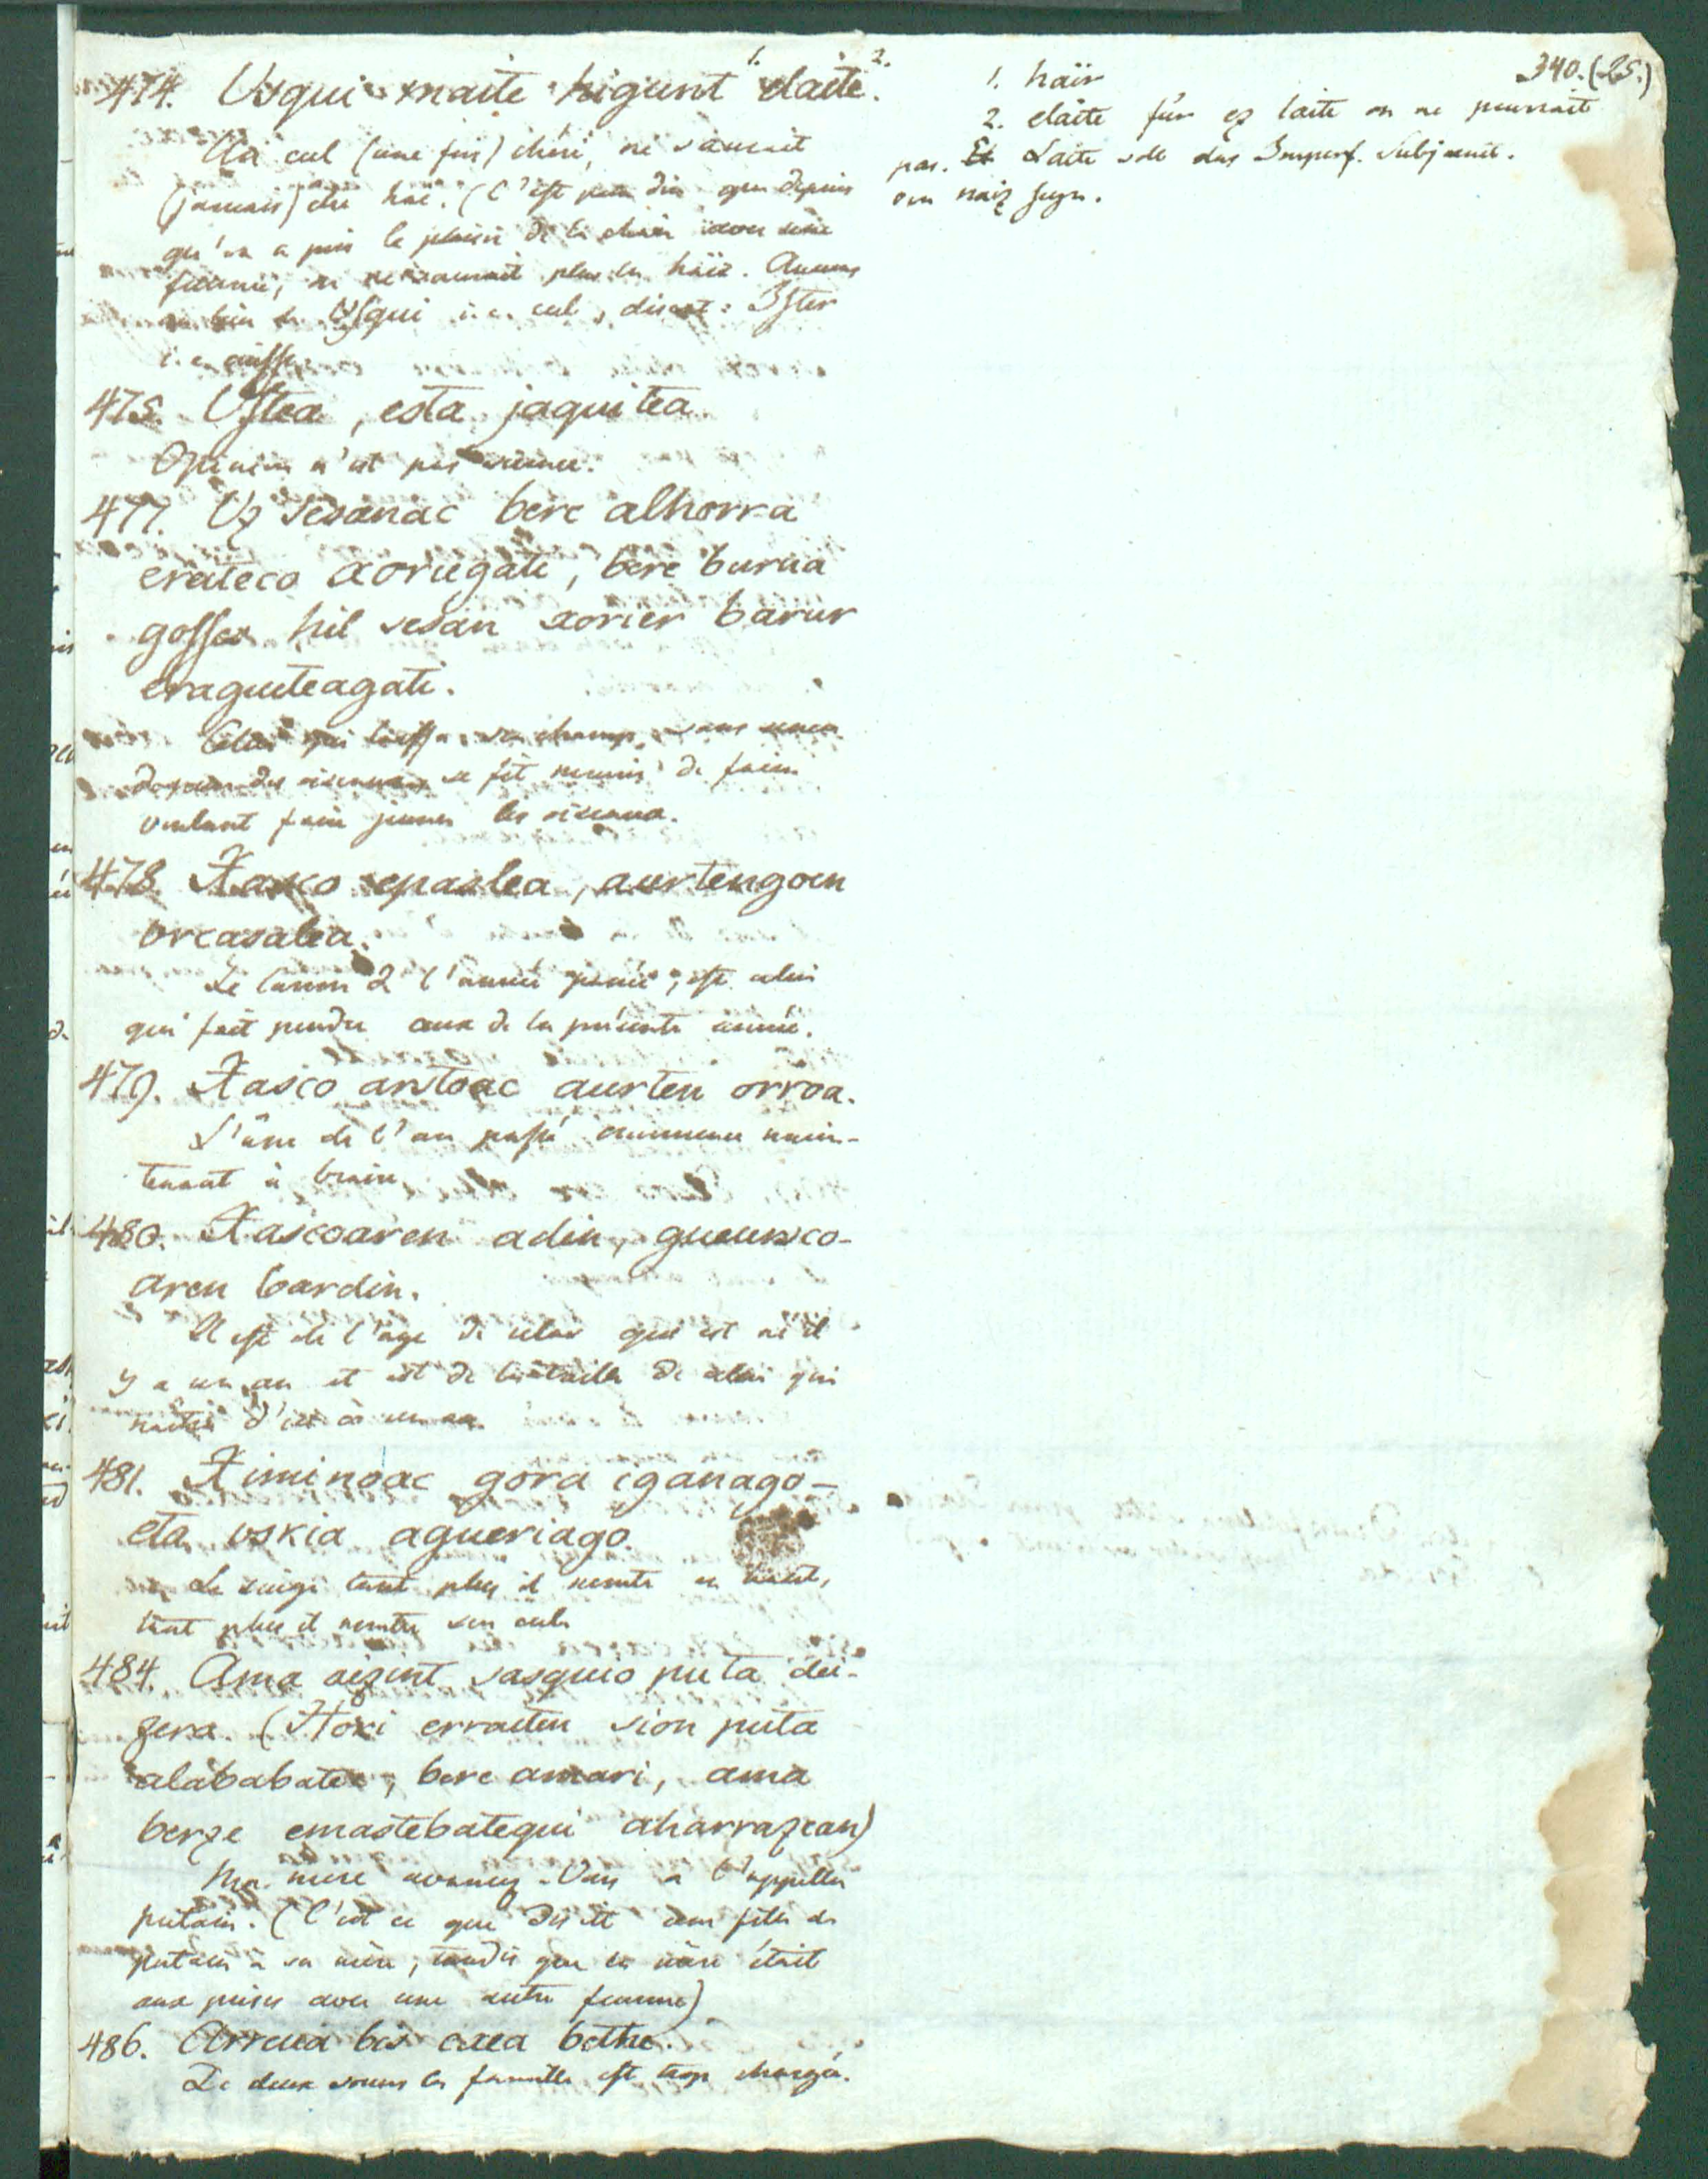 340.(25.)
474. Usqui maite higunt¹· elaite²·
Un cul (une fois) chéri, ne saurait
(jamais) être haï. (C'est pour dire que depuis
qu'on a pris le plaisir de la chair avec une
femme, on ne saurait plus la haïr. Aucuns
au lieu de Usqui i. e. cul, disent: Ister
i. e. cuisse.
475. Ustea, esta jaquitea.
Opinion n'est pas science.
477. Uz sesanac bere alhorra
eraiteco xoriegati, bere burua
gosser hil sesan xorier barur
eraguiteagati.
Celui qui laissa son champ sans semer
de peur des oiseaux se fit mourir de faim
voulant faire jeuner les oiseaux.
478. Xasko epaslea, aurtengoen
urcasalea.
Le larron de l'année passée, est celui
qui fait pendre ceux de la présente année.
479. Xasco astoac aurten orroa.
L'âne de l'an passé commence main-
tenant à braire.
480. Xascoaren adin, gueurzco-
aren bardin.
Il est de l'age de celui qui est né il
y a un an et est de la taille de celui qui
naitra d'ici à un an.
481. Ximinoac gora iganago-
eta uskia agueriago.
Le singe tant plus il monte en haut,
tant plus il montre son cul.
484. Ama aizint sasquio puta dei-
zera. (Hori erraiten sion puta
alababatec, bere amari, ama
berze emastebatequi aharrazean)
Ma mere avancez-Vous a l'appeller
putain. (C'est ce que disait une fille de
putain à sa mère, tandis que la mère était
aux prises avec une autre femme)
486. Arreua bis axea bethe.
De deux soeurs la famille est trop chargée.
1. haïr
2. elaite für ez laite on ne pourrait
pas. Laite soll das Imperf. Subjonct.
von naiz seyn.